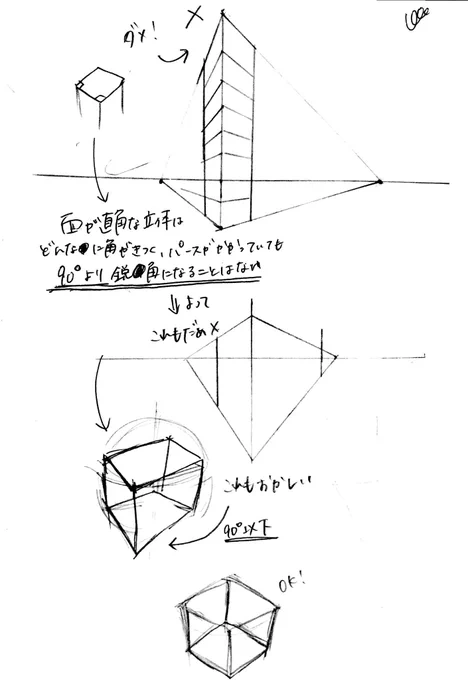 ダメ!
×
面が直角な立体は
どんなに角がきつく、パースがかかっていても
90°より鋭角になることはない
⇓よって
これもだめ×
これもおかしい
90°以下
OK!